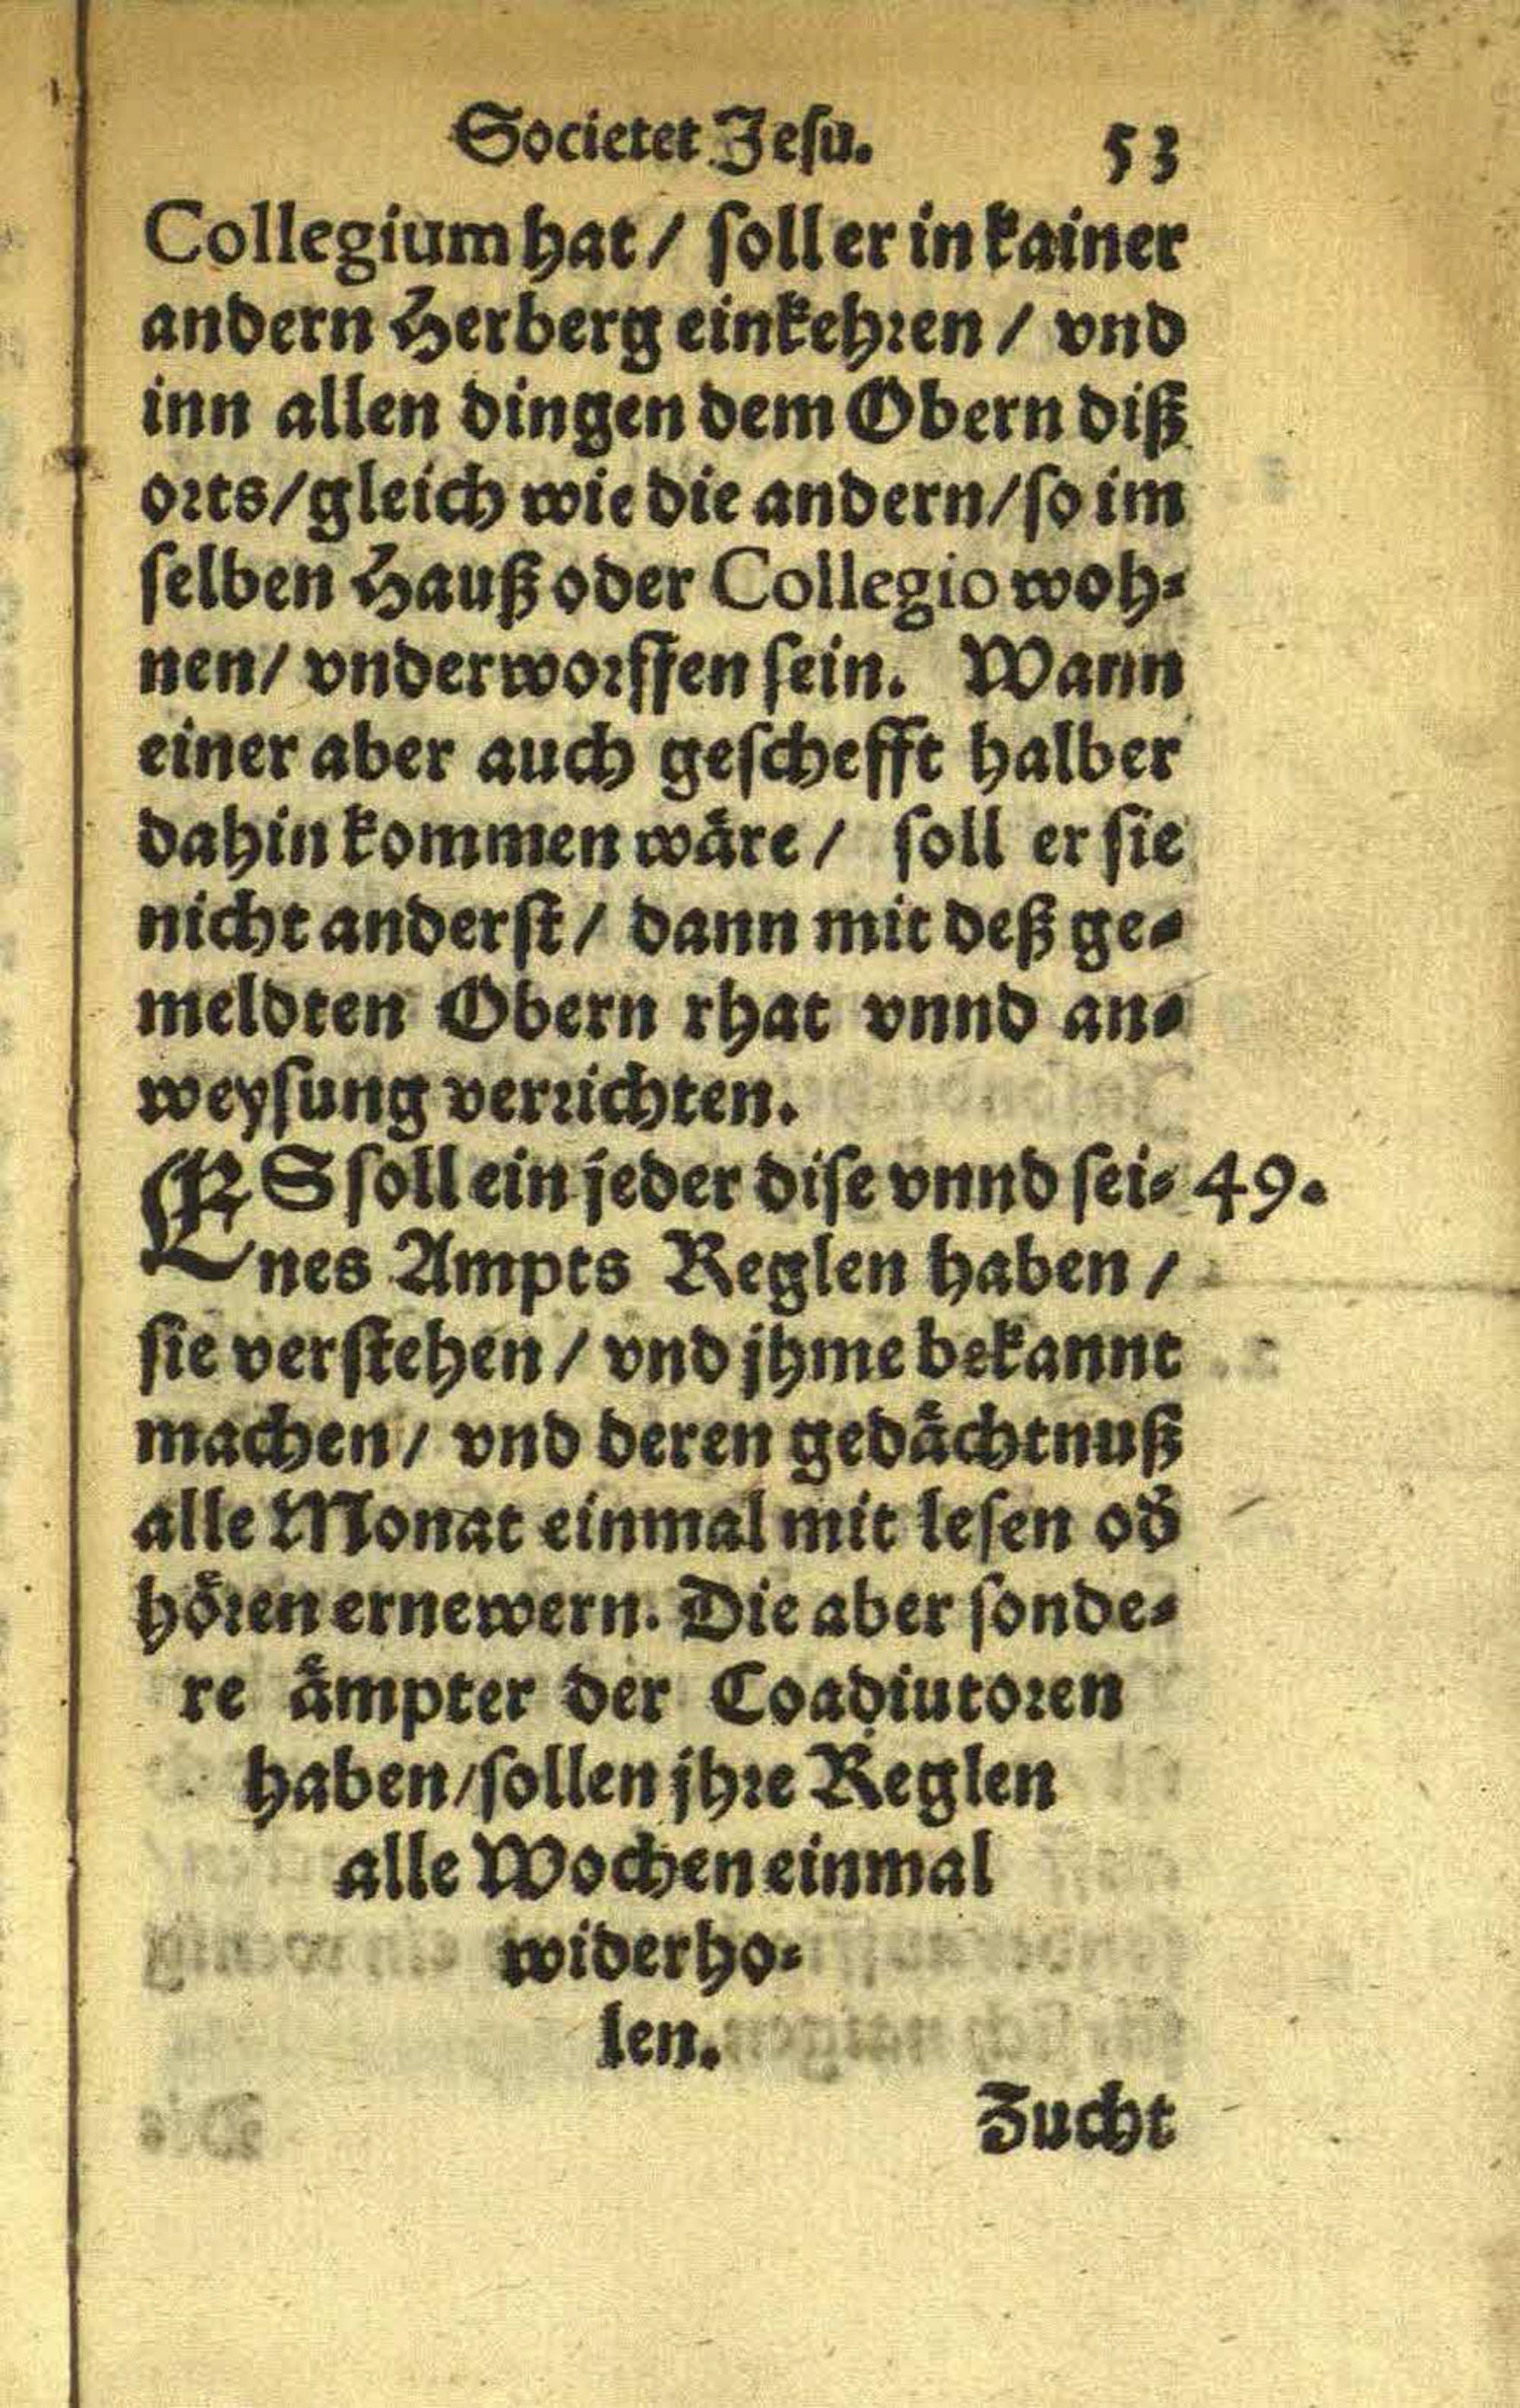 Societet Jesu. 53
Collegium hat / soll er in kainer
andern Herberg einkehren / vnd
inn allen dingen dem Obern diß
orts/gleich wie die andern/so im
selben Hauß oder Collegio woh-
nen/ vnderworffen sein. Wann
einer aber auch geschefft halber
dahin kommen wåre / soll er sie
nicht anderst / dann mit deß ge-
meldten Obern rhat vnnd an-
weysung verrichten.
ES soll ein jeder dise vnnd sei- 49.
nes Ampts Reglen haben /
sie verstehen / vnd jhme bekannt
machen / vnd deren gedåchtnuß
alle Monat einmal mit lesen od̄
hören ernewern. Die aber sonde-
re åmpter der Coadiutoren
haben/sollen jhre Reglen
alle Wochen einmal
widerho-
len.
Zucht